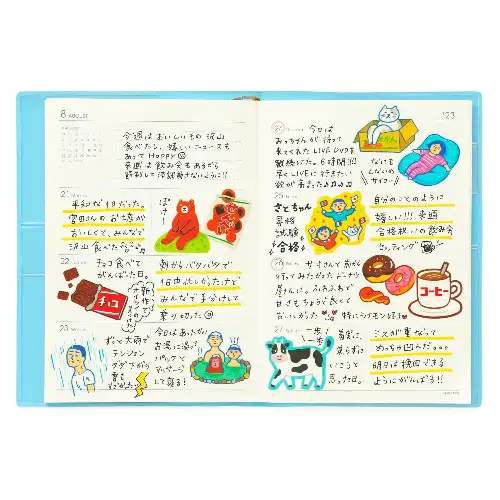 8 AUGUST
今週はおいしいもの沢山
食べたし、嬉しいニュースも
あってHappy
来週は飲み会もあるから
21
平和な1日だった。
宮田さんのお土産が
おいしくて、みんなで
沢山食べた
ぼけー
22
チョコ食べて
がんばった日。
チョコ
新作
朝からバタバタで
1日中忙しかったけど
みんなで手分けして
乗り切った
23
ずっと大雨で
テンション
ダダ下がり
今日はあたたかい
お湯に浸かって
パックで
マッサージ
して寝る!
24
'23
今日は
みっちゃんが持って
来てくれたLIVE DVDを
観た。6時間!!!
早くLIVEに行きたい
欲が高まった
なにも
しないの
サイコー
25
さとちゃん
昇格
試験
合格
自分のことのように
嬉しい!!! 来週
合格祝いの飲み会
セッティング
26
行ってみたかったドーナツ
屋さんに。ふわふわで
甘さもちょうど良くて
おいしかった 特にシナモンを
コーヒー
27
一歩
一歩
着実に
焦らずに
いこうと
思った日。
ミスが重なって
めっちゃ凹んだ。。。
明日は挽回できる
ようにがんばる!!